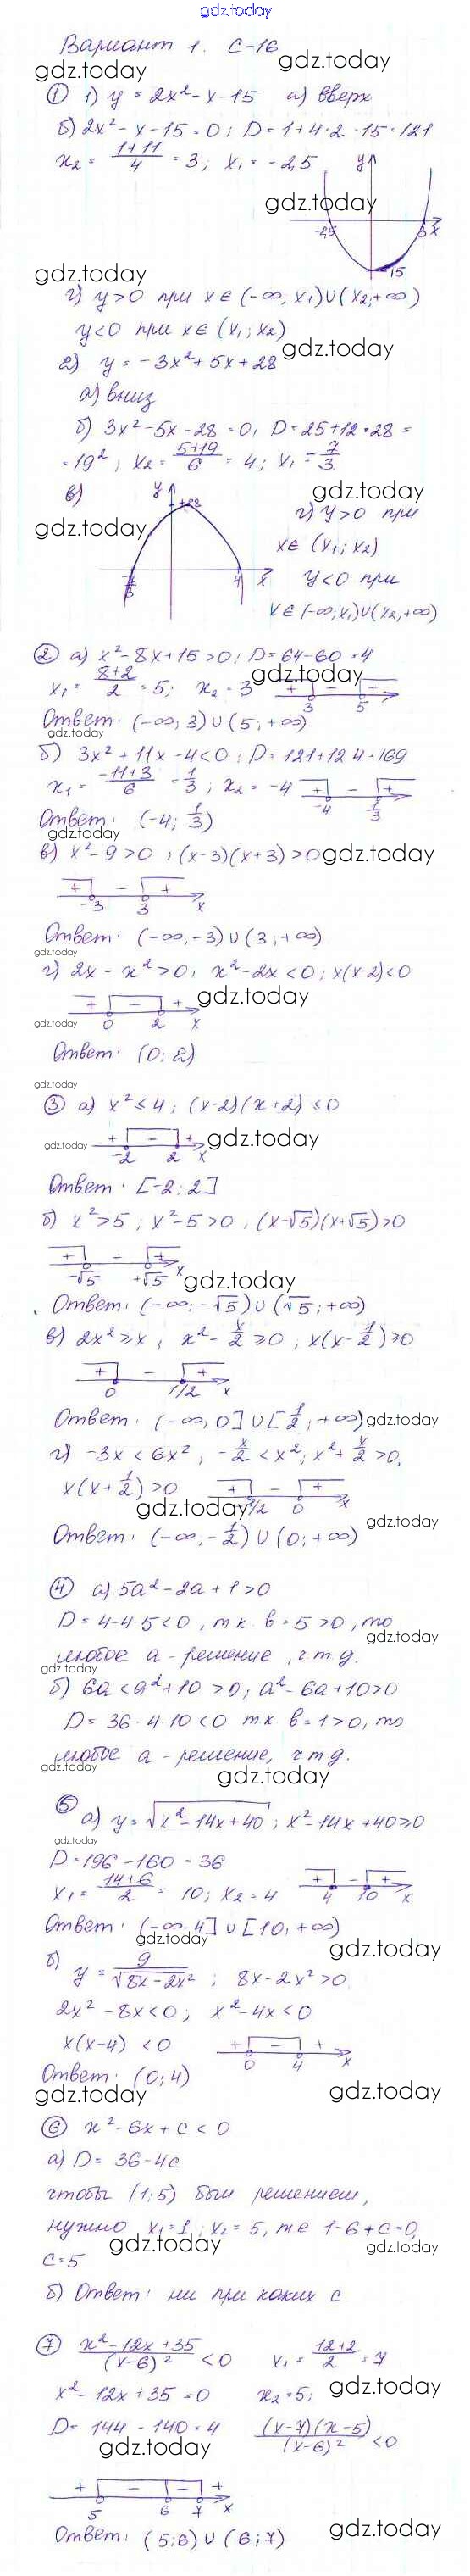 gdz.today
Вариант 1. С-16
gdz.today
gdz.today
① 1) y = 2x² - x - 15   а) вверх
б) 2x² - x - 15 = 0; D = 1 + 4·2·15 = 121
x₂ = (1+11)/4 = 3; x₁ = -2,5
y
gdz.today
-2,5   3   x
-15
gdz.today
г) y > 0 при x ∈ (-∞, x₁)∪(x₂, +∞)
y < 0 при x ∈ (x₁; x₂)
gdz.today
2) y = -3x² + 5x + 28
а) вниз
gdz.today
б) 3x² - 5x - 28 = 0, D = 25 + 12·28 =
= 19²; x₂ = (5+19)/6 = 4; x₁ = -7/3
в)   y
gdz.today
28
г) y > 0 при
gdz.today
x ∈ (x₁; x₂)
-7/3   4   x
y < 0 при
x ∈ (-∞, x₁)∪(x₂, +∞)
② а) x² - 8x + 15 > 0; D = 64 - 60 = 4
gdz.today
x₁ = (8+2)/2 = 5; x₂ = 3
+ - +
3   5
Ответ: (-∞; 3) ∪ (5; +∞)
gdz.today
б) 3x² + 11x - 4 < 0; D = 121 + 12·4 = 169
x₁ = (-11+3)/6 = 1/3; x₂ = -4
+ - +
-4   1/3
Ответ: (-4; 1/3)
gdz.today
в) x² - 9 > 0; (x-3)(x+3) > 0
gdz.today
+ - +
-3   3   x
Ответ: (-∞, -3) ∪ (3; +∞)
gdz.today
г) 2x - x² > 0, x² - 2x < 0; x(x-2) < 0
+ - +
gdz.today
gdz.today
0   2   x
Ответ: (0; 2)
gdz.today
③ а) x² ≤ 4; (x-2)(x+2) ≤ 0
gdz.today
+ - +
gdz.today
-2   2   x
Ответ: [-2; 2]
б) x² > 5; x² - 5 > 0, (x-√5)(x+√5) > 0
+ - +
-√5   +√5   x
gdz.today
Ответ: (-∞, -√5) ∪ (√5; +∞)
в) 2x² ≥ x; x² - x/2 ≥ 0, x(x - 1/2) ≥ 0
+ - +
0   1/2   x
Ответ: (-∞, 0] ∪ [1/2; +∞)
gdz.today
г) -3x < 6x², -x/2 < x²; x² + x/2 > 0,
x(x + 1/2) > 0
+ - +
gdz.today
1/2   0   x
gdz.today
Ответ: (-∞, -1/2) ∪ (0; +∞)
④ а) 5a² - 2a + 1 > 0
D = 4 - 4·5 < 0, т.к. в = 5 > 0, то
gdz.today
любое a - решение, ч.т.д.
gdz.today
б) 6a < a² + 10 > 0; a² - 6a + 10 > 0
D = 36 - 4·10 < 0 т.к. в = 1 > 0, то
любое a - решение, ч.т.д.
gdz.today
gdz.today
⑤ а) y = √(x² - 14x + 40); x² - 14x + 40 ≥ 0
gdz.today
D = 196 - 160 = 36
x₁ = (14+6)/2 = 10; x₂ = 4
+ - +
4   10   x
Ответ: (-∞, 4] ∪ [10, +∞)
gdz.today
gdz.today
б) y = 9/√(8x - 2x²); 8x - 2x² > 0
2x² - 8x < 0; x² - 4x < 0
x(x-4) < 0
+ - +
0   4   x
Ответ: (0; 4)
gdz.today
gdz.today
⑥ x² - 6x + c < 0
а) D = 36 - 4c
чтобы (1; 5) был решением,
нужно x₁ = 1; x₂ = 5, т.е 1 - 6 + c = 0,
gdz.today
gdz.today
c = 5
б) Ответ: ни при каких c
⑦ (x² - 12x + 35)/(x-6)² < 0   x₁ = (12+2)/2 = 7
x² - 12x + 35 = 0   x₂ = 5;
gdz.today
D = 144 - 140 = 4   (x-7)(x-5)/(x-6)² < 0
gdz.today
+ - - +
5   6   7   x
Ответ: (5; 6) ∪ (6; 7)
gdz.today